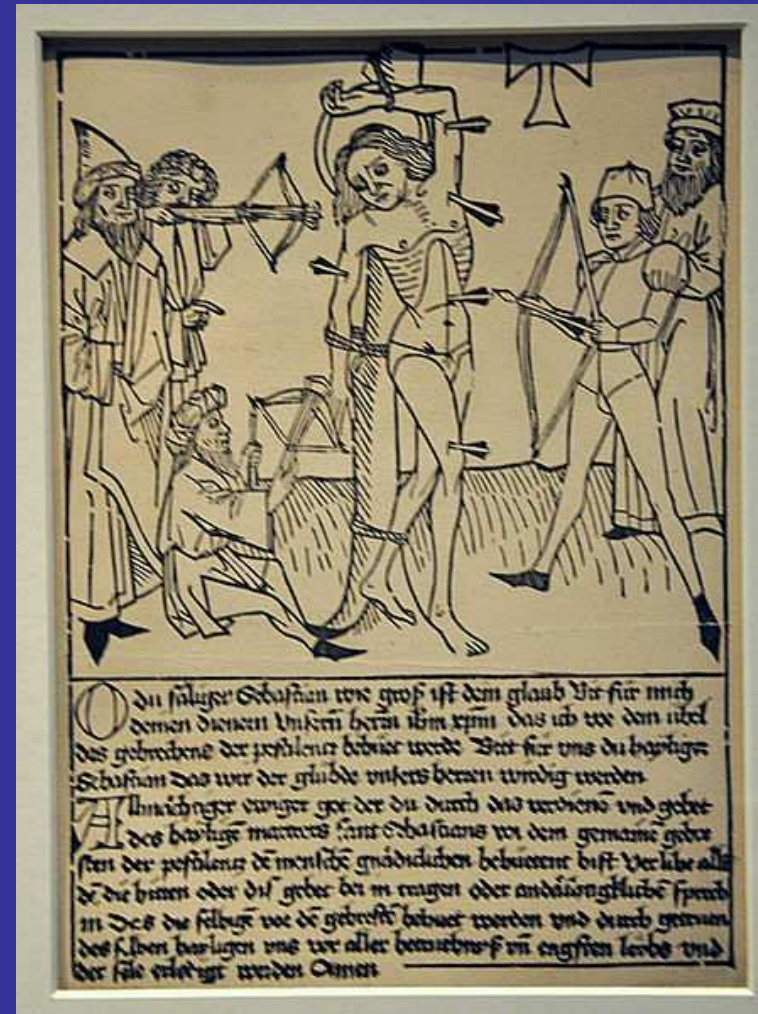 O du säliger Sebastian wie groß ist dein glaub Bit für mich
deinen dienern unsern herrn ihm xpm das ich vor dem übel
des gebrechens der pestilentz behüet werde Bitt für uns du hayliger
Sebastian das wir der glübde unsers herren wirdig werden
Almächtiger ewiger got der du durch das verdienen und gebet
des hayligē marters sant Sebastians vor dem gemainē gebre
sten der pestilentz dē menschē gnädiclichen behüetent bist Verlihe allē
dē die bitten oder diß gebet bei in tragen oder andächtigklichē sprech
in Des die selbige vor dē gebrestē behuet werden und durch getruen
des selben hayligen uns vor aller betruebnuß uñ engsten leibs und
der sele erlediget werden Amen